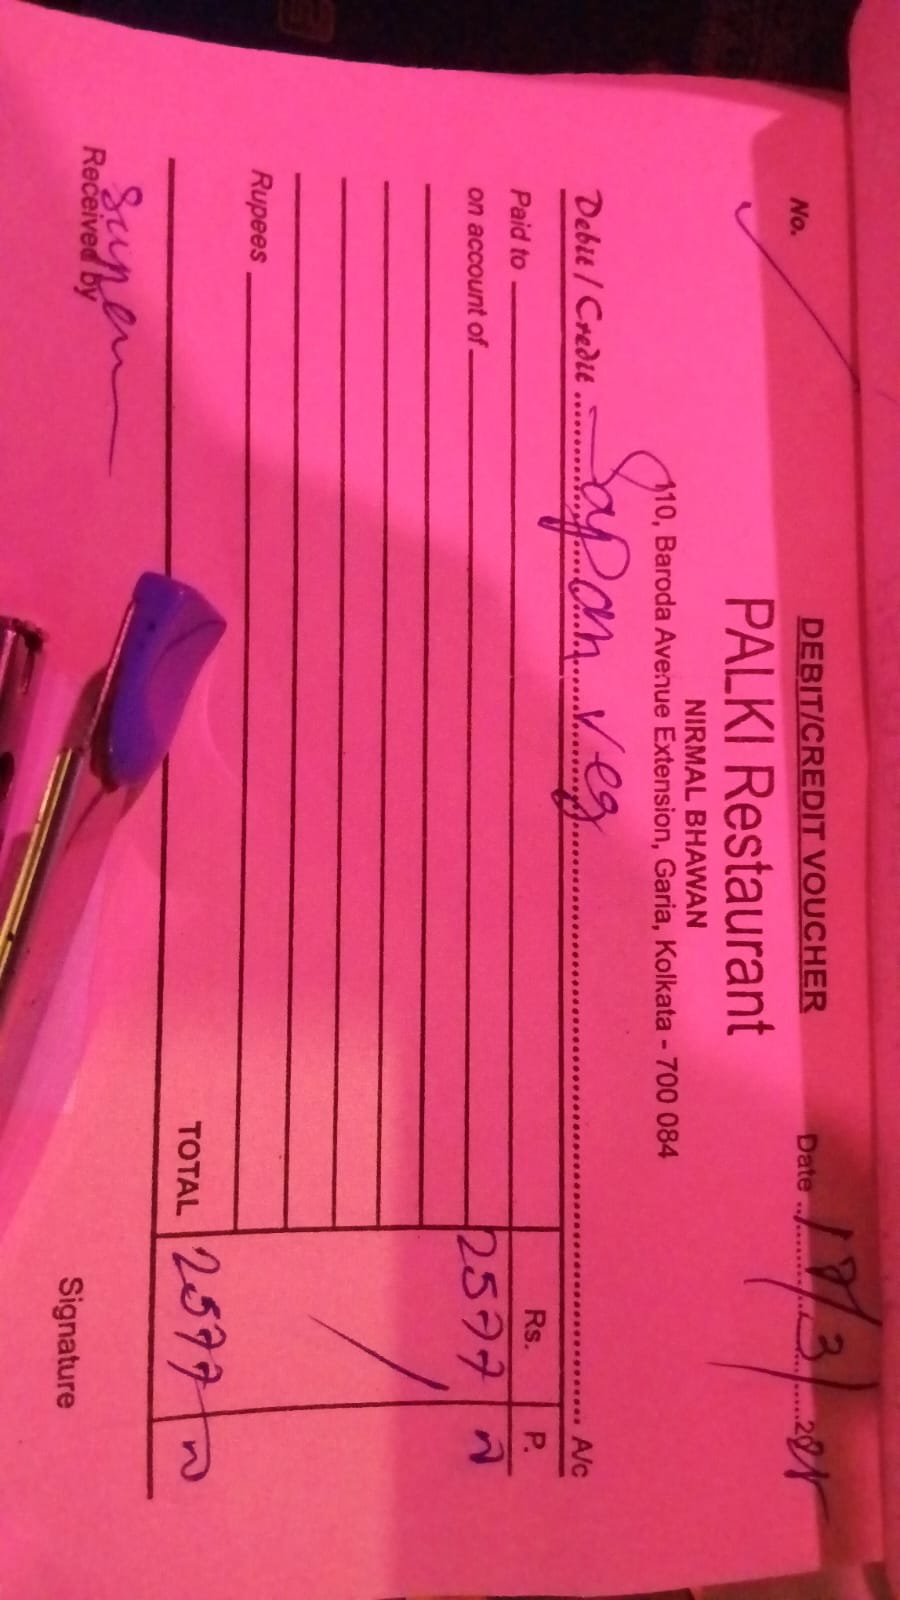 DEBIT/CREDIT VOUCHER
No. Date 18/3/
PALKI Restaurant
NIRMAL BHAWAN
110, Baroda Avenue Extension, Garia, Kolkata - 700 084
Debit / Credit Sapan veg A/c
Paid to Rs. P.
on account of 2577
Rupees
TOTAL 2577
Received by Signature